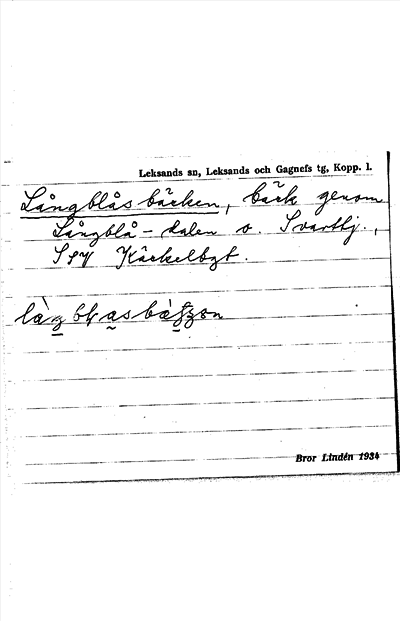 Leksands sn, Leksands och Gagnefs tg, Kopp. l.
Långblåsbäcken, bäck genom
Långblå-dalen o. Svarttj.,
S Käckelbgt.
Bror Lindén 1934